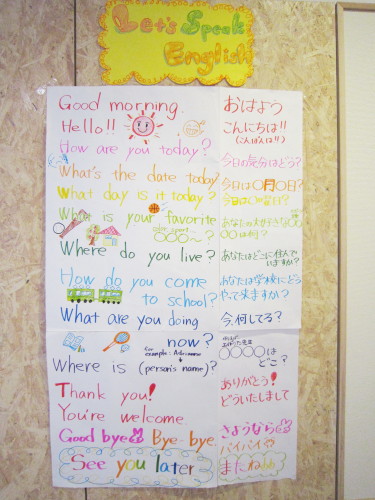 Let's Speak
English
Good morning. おはよう
Hello!! こんにちは!!
(こんばんは!!)
How are you today? 今日は気分はどう?
What's the date today 今日は〇月〇日?
What day is it today? 今日は〇曜日?
What is your favorite あなたの大好きな〇〇
〇〇〇〜? 〇〇は何?
Where do you live? あなたはどこに住んで
いますか?
How do you come あなたは学校にどう
to school? やって来ますか?
What are you doing 今、何してる?
now?
Where is (person's name)? 〇〇〇〇は
どこ?
Thank you! ありがとう!
You're welcome どういたしまして
Good bye Bye-bye. さようなら
バイバイ
See you later またね